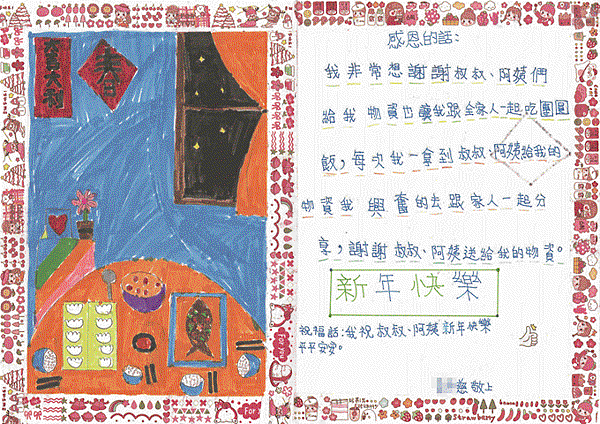 大吉大利
春
感恩的話：
我非常想謝謝叔叔、阿姨們
給我物資也讓我跟全家人一起吃團圓
飯，每次我一拿到叔叔、阿姨給我的
物資我興奮的去跟家人一起分
享，謝謝叔叔、阿姨送給我的物資。
新年快樂
祝福話：我祝叔叔、阿姨新年快樂
平平安安。
慈敬上
For:
Strawberry